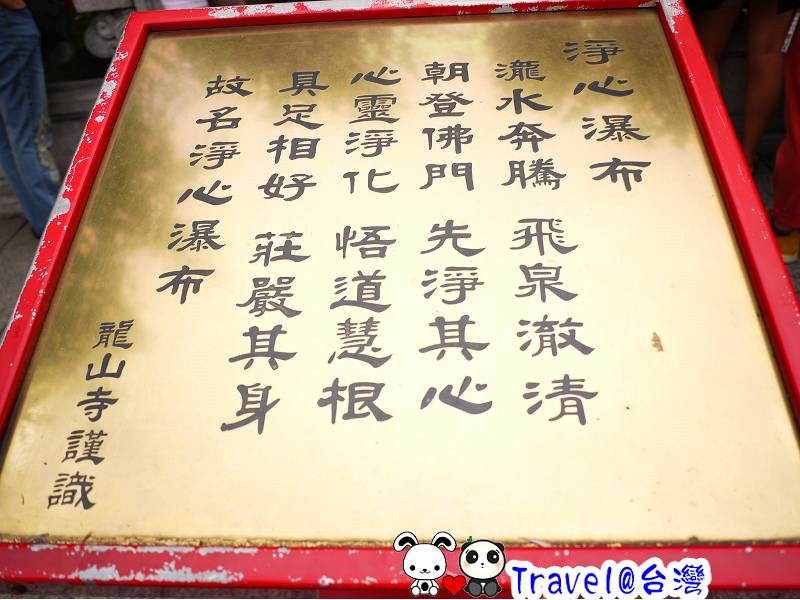 淨心瀑布
瀧水奔騰 飛泉澈清
朝登佛門 先淨其心
心靈淨化 悟道慧根
具足相好 莊嚴其身
故名淨心瀑布
龍山寺謹識
Travel@台灣